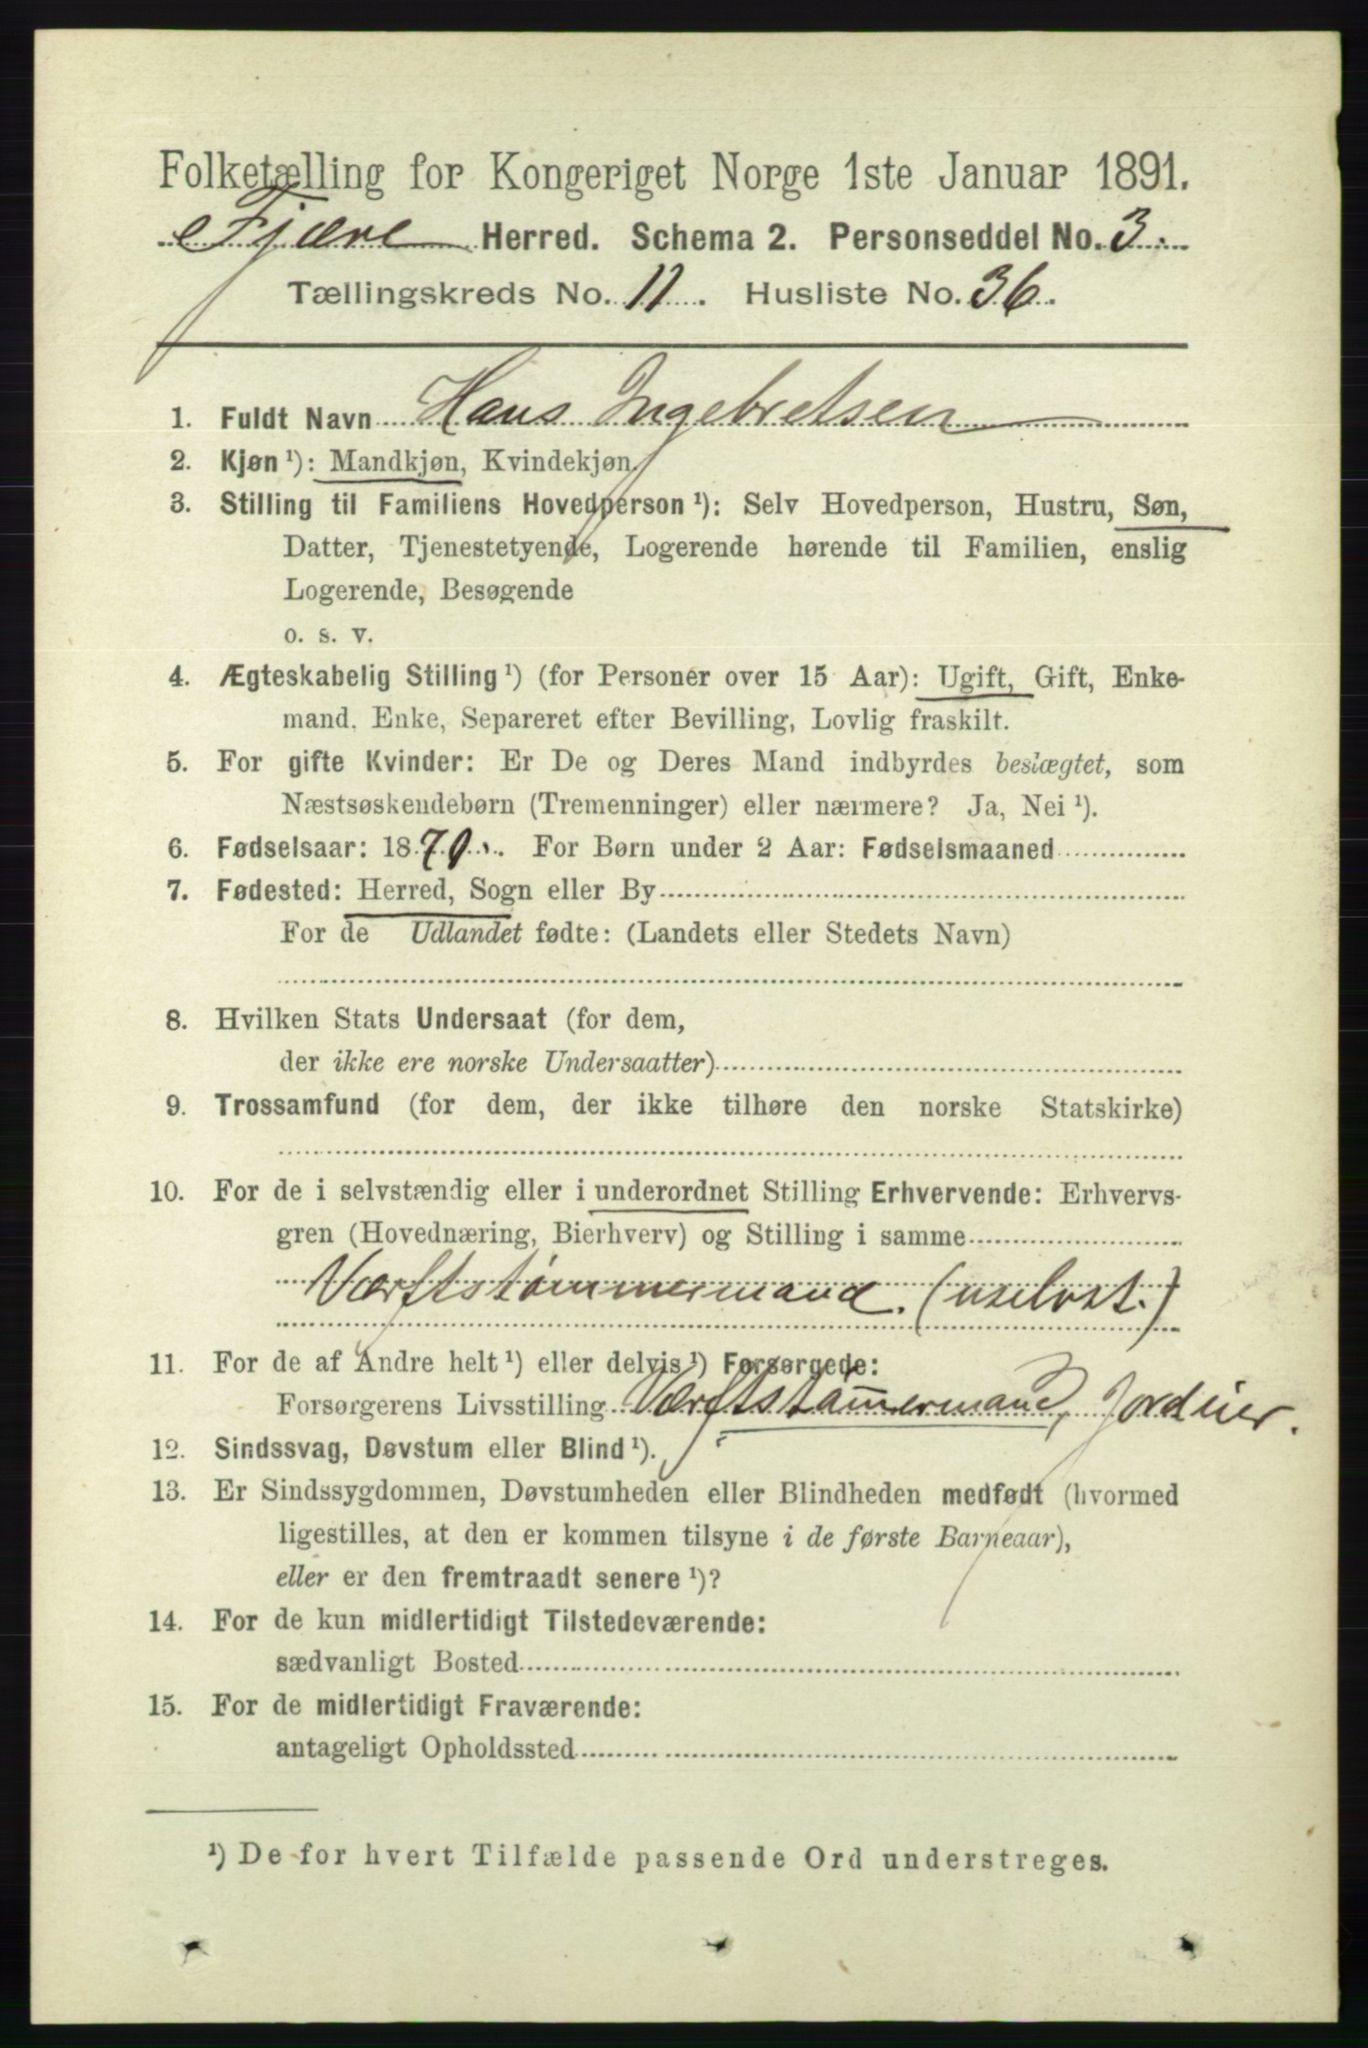 Folketælling for Kongeriget Norge 1ste Januar 1891.
Fjære Herred. Schema 2. Personseddel No. 3.
Tællingskreds No. 11. Husliste No. 36.
1. Fuldt Navn Hans Ingebretsen
2. Kjøn ¹): Mandkjøn, Kvindekjøn.
3. Stilling til Familiens Hovedperson ¹): Selv Hovedperson, Hustru, Søn,
Datter, Tjenestetyende, Logerende hørende til Familien, enslig
Logerende, Besøgende
o. s. v.
4. Ægteskabelig Stilling ¹) (for Personer over 15 Aar): Ugift, Gift, Enke-
mand, Enke, Separeret efter Bevilling, Lovlig fraskilt.
5. For gifte Kvinder: Er De og Deres Mand indbyrdes beslægtet, som
Næstsøskendebørn (Tremenninger) eller nærmere? Ja, Nei ¹).
6. Fødselsaar: 1870. For Børn under 2 Aar: Fødselsmaaned
7. Fødested: Herred, Sogn eller By
For de Udlandet fødte: (Landets eller Stedets Navn)
8. Hvilken Stats Undersaat (for dem,
der ikke ere norske Undersaatter)
9. Trossamfund (for dem, der ikke tilhøre den norske Statskirke)
10. For de i selvstændig eller i underordnet Stilling Erhvervende: Erhvervs-
gren (Hovednæring, Bierhverv) og Stilling i samme
Værftstømmermand.
11. For de af Andre helt ¹) eller delvis ¹) Forsørgede:
Forsørgerens Livsstilling Værftstømmermand, Jordeier.
12. Sindssvag, Døvstum eller Blind ¹).
13. Er Sindssygdommen, Døvstumheden eller Blindheden medfødt (hvormed
ligestilles, at den er kommen tilsyne i de første Barneaar),
eller er den fremtraadt senere ¹)?
14. For de kun midlertidigt Tilstedeværende:
sædvanligt Bosted
15. For de midlertidigt Fraværende:
antageligt Opholdssted
¹) De for hvert Tilfælde passende Ord understreges.